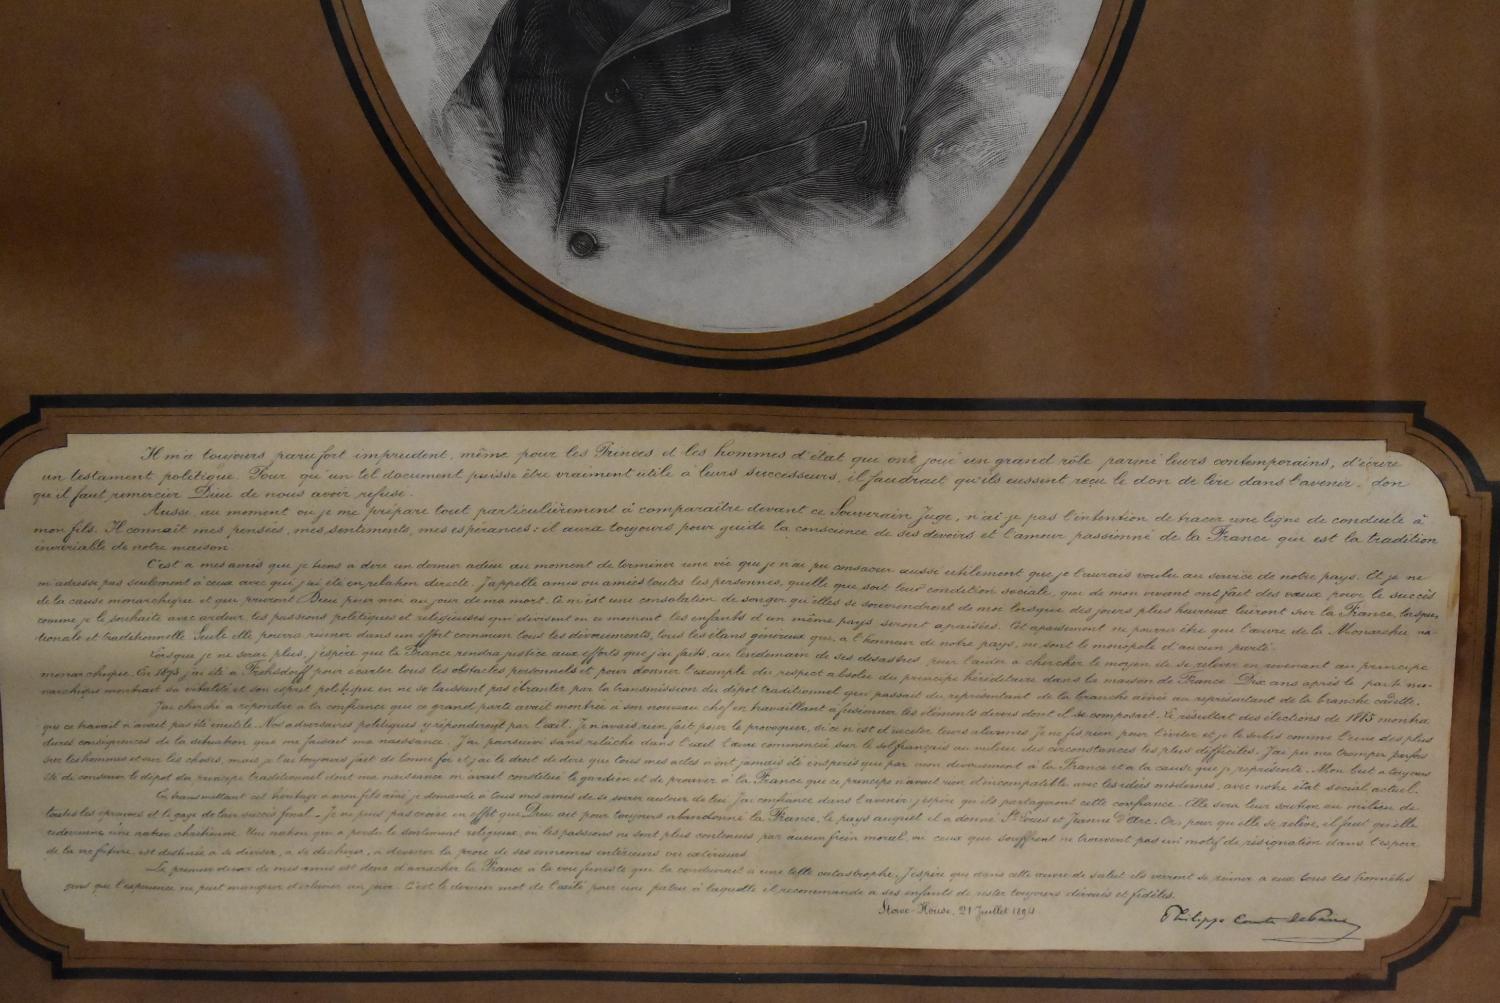 Il m'a toujours paru fort imprudent, même pour les Princes et les hommes d'état que ont joué un grand rôle parmi leurs contemporains, d'écrire
un testament politique. Pour qu'un tel document puisse être vraiment utile à leurs successeurs, il faudrait qu'ils eussent reçu le don de lire dans l'avenir, don
qu'il faut remercier Dieu de nous avoir refusé.
Aussi, au moment où je me prépare tout particulièrement à comparaître devant ce Souverain Juge, n'ai je pas l'intention de tracer une ligne de conduite à
mon fils. Il connaît mes pensées, mes sentiments, mes espérances: il aura toujours pour guide la conscience de ses devoirs et l'amour passionné de la France qui est la tradition
invariable de notre maison.
C'est a mes amis que je tiens a dire un dernier adieu au moment de terminer une vie que je n'ai pu consacrer aussi utilement que je l'aurais voulu au service de notre pays. Et je ne
m'adresse pas seulement à ceux avec qui j'ai été en relation directe. J'appelle amis ou amies toutes les personnes, quelle que soit leur condition sociale, qui de mon vivant ont fait des vœux pour le succès
de la cause monarchique et qui prieront Dieu pour moi au jour de ma mort. Ce m'est une consolation de songer qu'elles se souviendront de moi lorsque des jours plus heureux luiront sur la France, lorsque,
comme je le souhaite avec ardeur, les passions politiques et religieuses qui divisent en ce moment les enfants d'un même pays seront apaisées. Cet apaisement ne pourra être que l'œuvre de la Monarchie na-
tionale et traditionnelle. Seule elle pourra réunir dans un effort commun tous les dévouements, tous les élans généreux qui, à l'honneur de notre pays, ne sont le monopole d'aucun parti.
Lorsque je ne serai plus, j'espère que la France rendra justice aux efforts que j'ai faits, au lendemain de ses désastres, pour l'aider a chercher le moyen de se relever en revenant au principe
monarchique. En 1873, j'ai été a Frohsdorff pour écarter tous les obstacles personnels et pour donner l'exemple du respect absolu du principe héréditaire dans la maison de France. Dix ans après le parti mo-
narchique montrait sa vitalité et son esprit politique en ne se laissant pas ébranler par la transmission du dépot traditionnel qui passait du représentant de la branche ainée au représentant de la branche cadette.
J'ai cherché a répondre a la confiance que ce grand parti avait montrée à son nouveau chef en travaillant a fusionner les éléments divers dont il se composait. Le résultat des élections de 1885 montra
que ce travail n'avait pas été inutile. Nos adversaires politiques y répondirent par l'exil. Je n'avais rien fait pour le provoquer, si ce n'est d'exciter leurs alarmes. Je ne fis rien pour l'éviter et je le subis comme l'une des plus
dures conséquences de la situation que me faisait ma naissance. J'ai poursuivi sans relâche dans l'exil l'œuvre commencée sur le sol français au milieu des circonstances les plus difficiles. J'ai pu me tromper parfois
sur les hommes et sur les choses, mais je l'ai toujours fait de bonne foi et j'ai le droit de dire que tous mes actes n'ont jamais été inspirés que par mon dévouement à la France et a la cause que je représente. Mon but a toujours
été de conserver le dépot du principe traditionnel dont ma naissance m'avait constitué le gardien et de prouver à la France que ce principe n'avait rien d'incompatible avec les idées modernes, avec notre état social actuel.
En transmettant cet héritage a mon fils ainé je demande à tous mes amis de se serrer autour de lui. J'ai confiance dans l'avenir, j'espère qu'ils partageront cette confiance. Elle sera leur soutien au milieu de
toutes les épreuves et le gage de leur succès final. Je ne puis pas croire en effet que Dieu ait pour toujours abandonné la France, le pays auquel il a donné St Louis et Jeanne d'Arc. Or, pour qu'elle se relève, il faut qu'elle
redevienne une nation chrétienne. Une nation qui a perdu le sentiment religieux, ou les passions ne sont plus contenues par aucun frein moral, ou ceux qui souffrent ne trouvent pas un motif de résignation dans l'espoir
de la vie future, est destinée a se diviser, a se déchirer, a devenir la proie de ses ennemis intérieurs ou extérieurs.
Le premier devoir de mes amis est donc d'arracher la France à la voie funeste qui la conduirait a une telle catastrophe. J'espère que dans cette œuvre de salut ils verront se réunir a eux tous les honnêtes
gens que l'expérience ne peut manquer d'éclairer un jour. C'est le dernier mot de l'exilé pour une patrie à laquelle il recommande a ses enfants de rester toujours dévoués et fidèles.
Stowe-House, 21 Juillet 1894
Philippe Comte de Paris